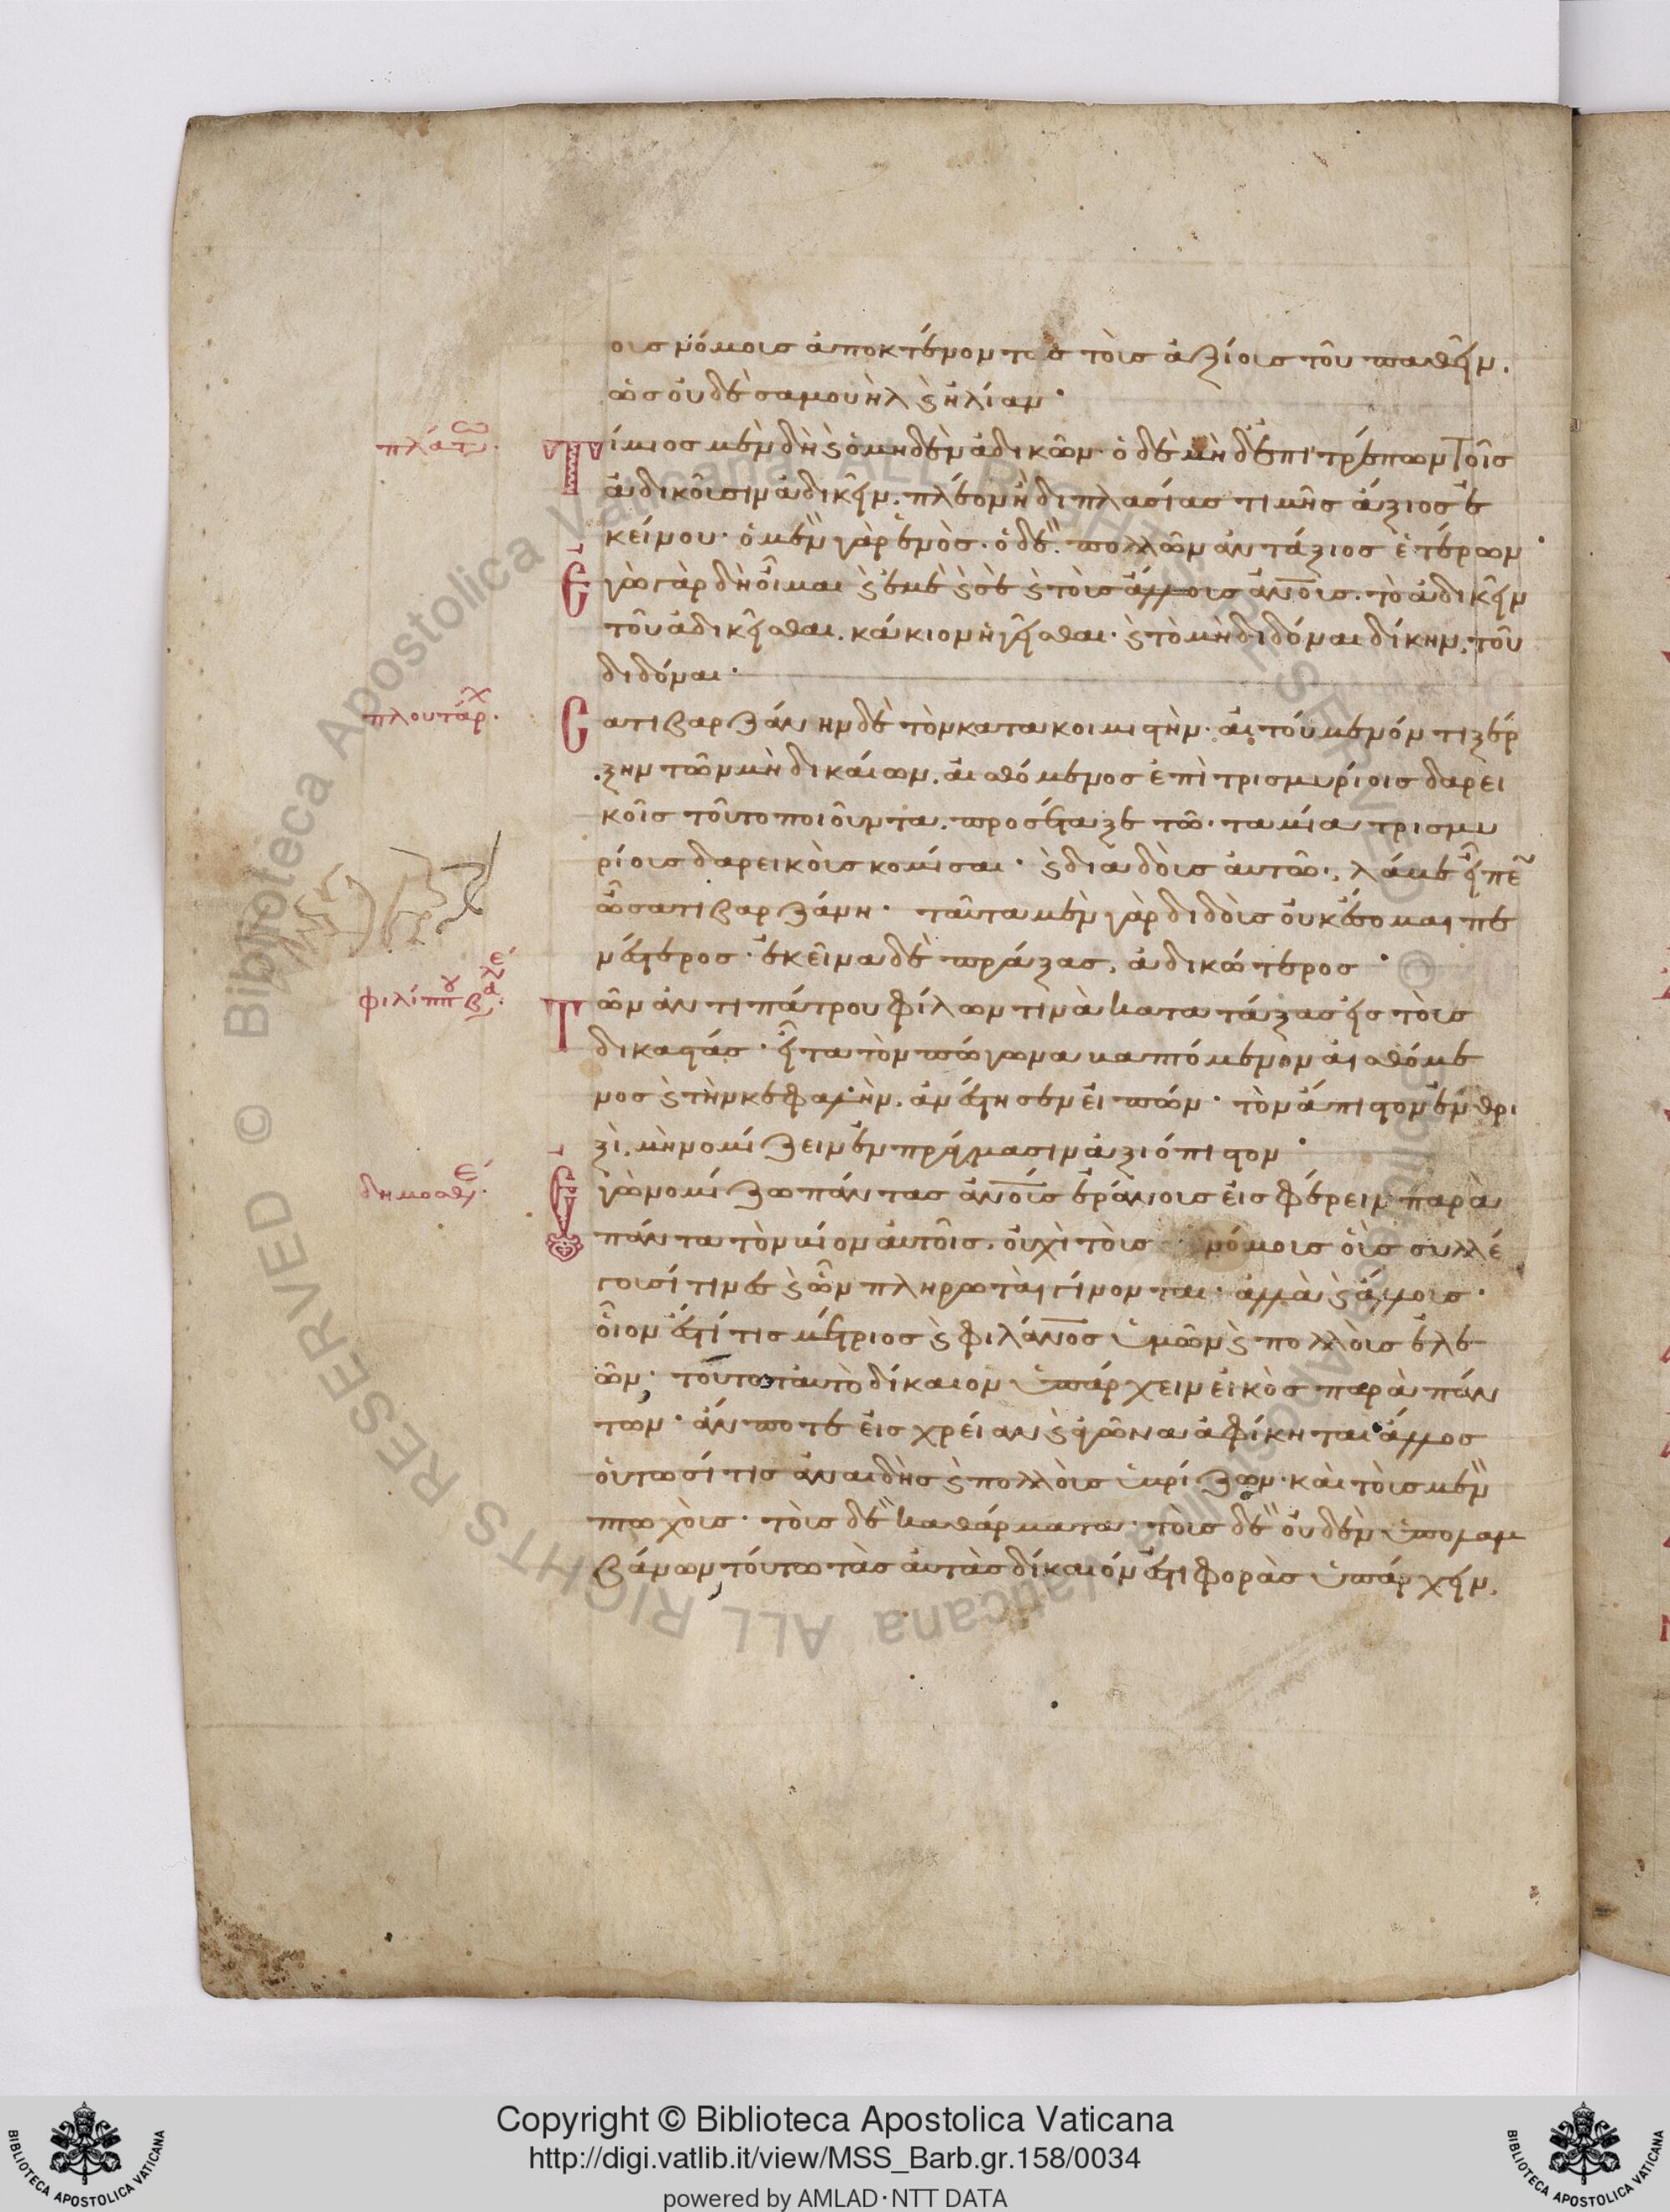 οις νόμοις ἀποκτένοντες τοὺς ἀξίους τοῦ παθεῖν.
ὡς οὐδὲ σαμουὴλ ϗ ἠλίαν·
πλάτω.
Τίμιος μὲν δὴ ϗ ὁ μηδὲν ἀδικῶν· ὁ δὲ μὴ δ' ἐπιτρέπων τοῖς
ἀδικοῦσιν ἀδικεῖν. πλέον ἢ διπλασίας τιμῆς ἄξιος ἐ
κείνου· ὁ μὲν γὰρ ἑνός. ὁ δὲ πολλῶν ἀντάξιος ἑτέρων·
Ἐγὼ γὰρ δὴ οἶμαι ϗ ἐμὲ ϗ σὲ ϗ τοὺς ἄλλους ἀνους. τὸ ἀδικεῖν
τοῦ ἀδικεῖσθαι. κάκιον ἡγεῖσθαι. ϗ τὸ μὴ διδόναι δίκην, τοῦ
διδόναι·
πλουτάρχ.
Σατιβαρζάνην δὲ τὸν κατακοιμιστὴν. αἰτούμενόν τι ξέρ
ξην τῶν μὴ δικαίων. αἰσθόμενος ἐπὶ τρισμυρίοις δαρει
κοῖς τοῦτο ποιοῦντα. προσέταξε τῶ ταμία τρισμυ
ρίους δαρεικοὺς κομίσαι· ϗ διαδοὺς αὐτῶ, λάμβ εἶπε
ὦ σατιβαρζάνη· ταῦτα μὲν γὰρ διδοὺς οὐκ ἔσομαι πε
νέστερος. ἐκεῖνα δὲ πράξας, ἀδικώτερος·
φιλίππου βα. ε
Τῶν ἀντιπάτρου φίλων τινὰ κατατάξας εἰς τοὺς
δικαστάς. εἶτα τὸν πώγωνα βαπτόμενον αἰσθόμε
νος ϗ τὴν κεφαλὴν. ἀνέστησεν εἰπών. τὸν ἄπιστον ἐν θρι
ξὶ. μὴ νομίζειν ἐν πράγμασιν ἀξιόπιστον·
δημοσθέ.
Ἐγὼ νομίζω πάντας ἀνους ἐράνους εἰσφέρειν παρὰ
πάντα τὸν βίον αὐτοῖς. οὐχὶ τοὺς νόμους οὓς συλλέ
γουσί τινες ϗ ὧν πληρωταὶ γίνονται. ἀλλὰ ϗ ἄλλους.
οἷον ἔστί τις μέτριος ϗ φιλάνος ἡμῶν ϗ πολλοὺς ἐλε
ῶν. τούτω ταυτὸ δίκαιον ὑπάρχειν εἰκὸς παρὰ πάν
των. ἄν ποτε εἰς χρείαν ϗ ἀγῶνα ἀφίκηται ἄλλος
οὑτωσί τις ἀναιδὴς ϗ πολλοὺς ὑβρίζων. καὶ τοὺς μὲν
πτωχοὺς. τοὺς δὲ καθάρματα. τοὺς δὲ οὐδὲν ὑπολαμ
βάνων τούτω τὰς αὐτὰς δίκαιόν ἐστι φορὰς ὑπάρχειν.
Copyright © Biblioteca Apostolica Vaticana
http://digi.vatlib.it/view/MSS_Barb.gr.158/0034
powered by AMLAD·NTT DATA
BIBLIOTECA APOSTOLICA VATICANA
BIBLIOTECA APOSTOLICA VATICANA
© Biblioteca Apostolica Vaticana ALL RIGHTS RESERVED
© Biblioteca Apostolica Vaticana ALL RIGHTS RESERVED